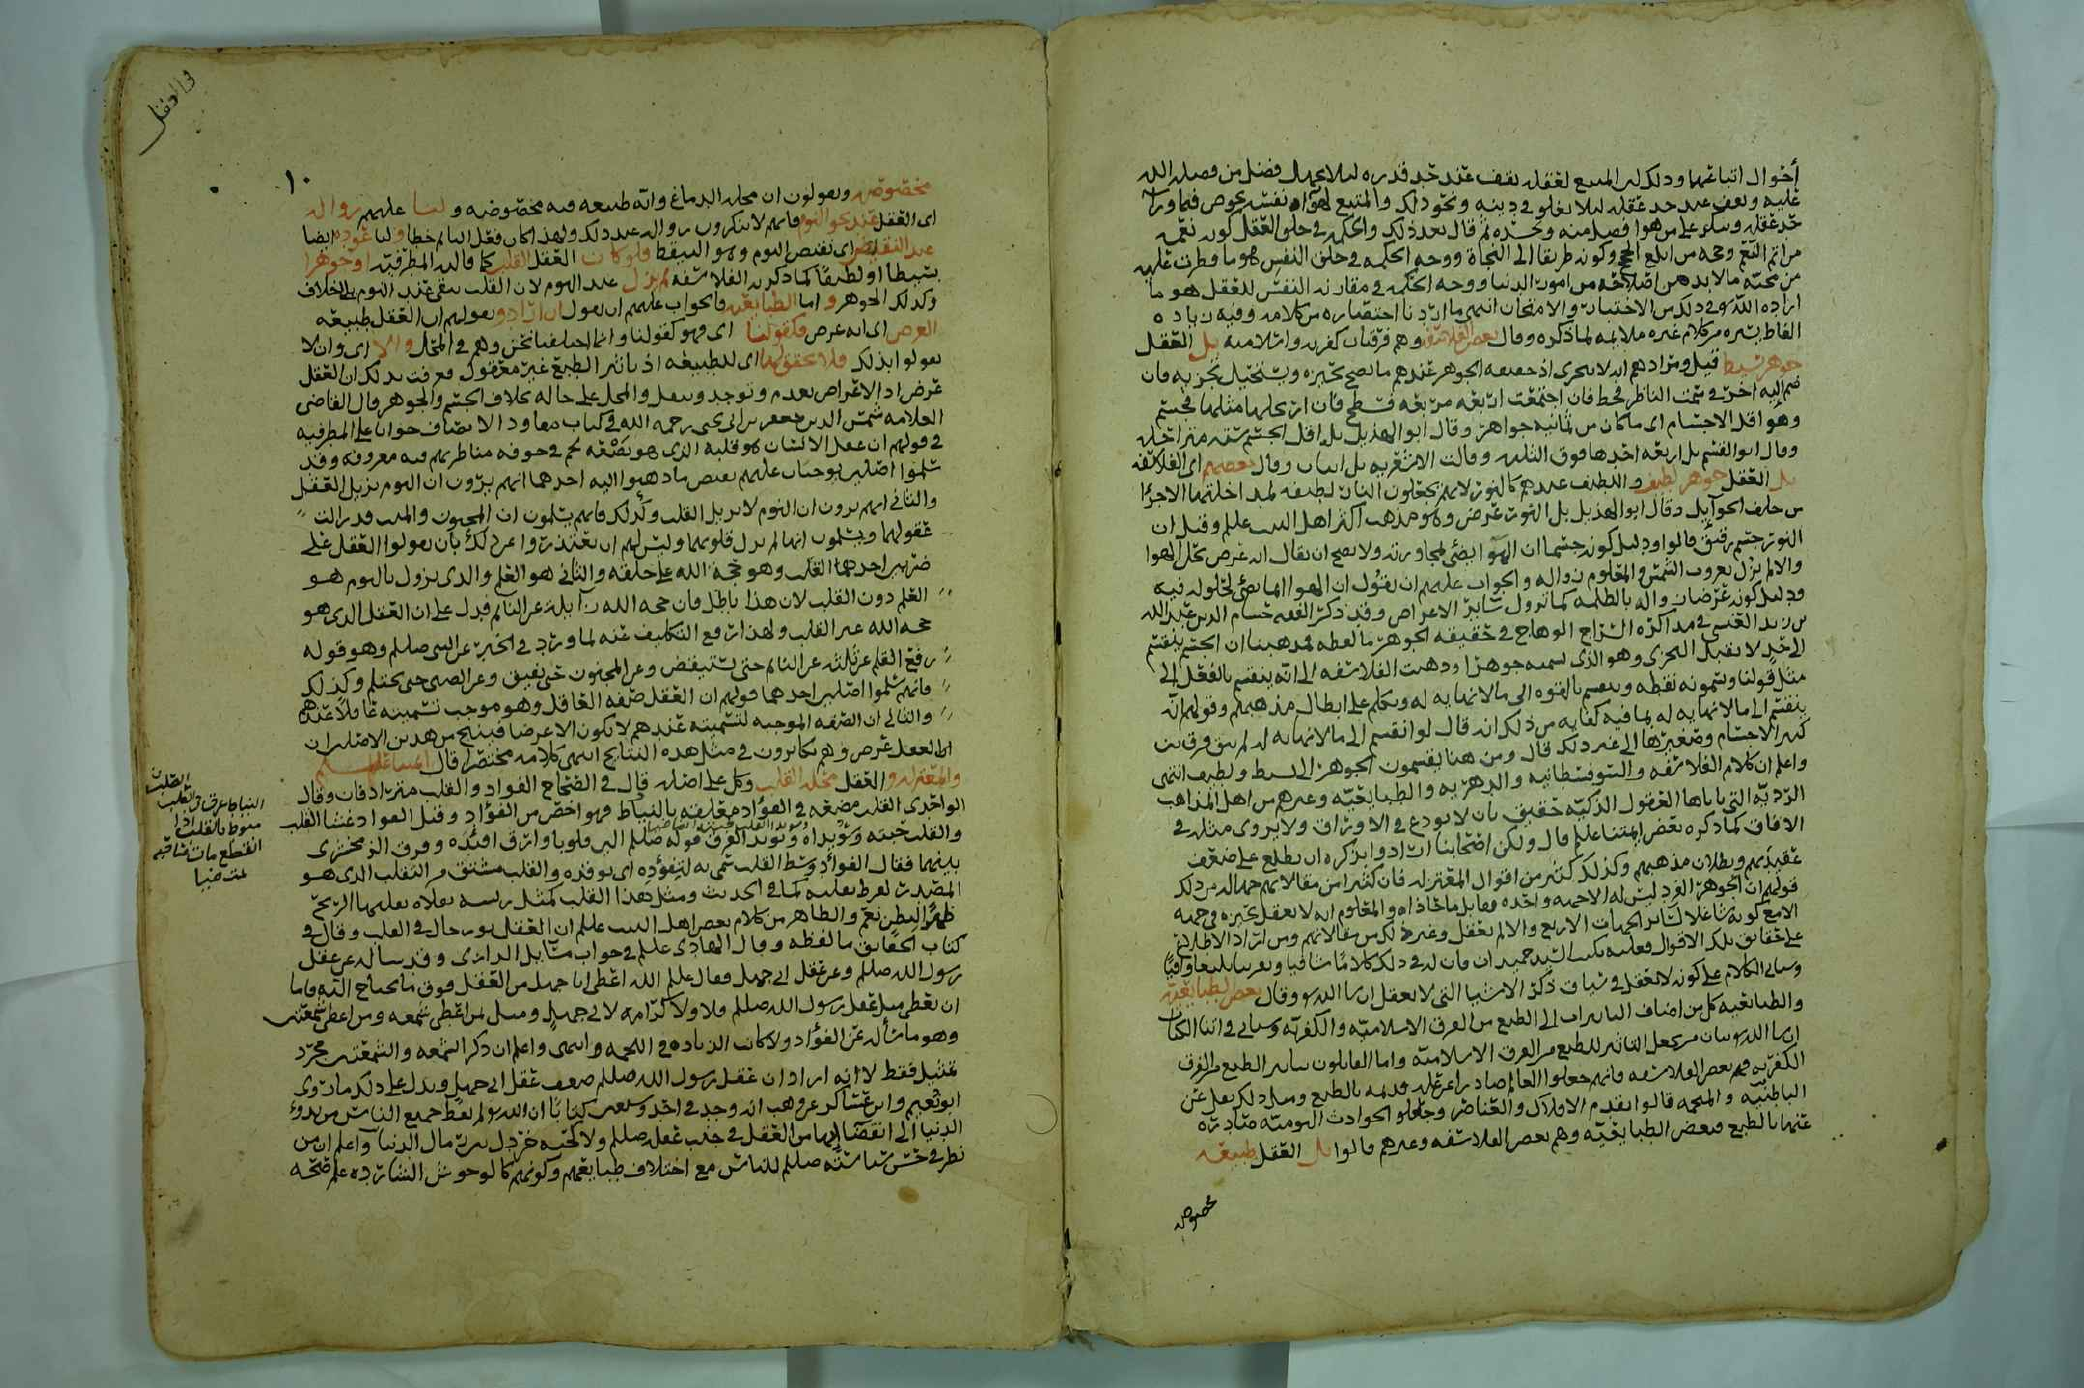 أحوال اتباعهما وذلك لان المتبع لعقله يقف عند حد قدره لئلا يجهل فضل من فضله الله
عليه ويقف عند حد عقله لئلا يغلو في دينه ونحو ذلك والمتبع لهواه نفسه يخوض فيما ورآ
حد عقله ويتكبر على من هو افضل منه ويحسده ثم قال بعد ذلك والحكمة في خلق العقل كونه نعمه
من اتم النعم وحجه من ابلغ الحجج وكونه طريقا الى النجاة ووجه الحكمه في خلق النفس هو ما فطرت عليه
من محبته مالا بد من اصلاحه من امور الدنيا ووجه الحكمه في مقارنة النفس للعقل هو ما
اراده الله في ذلك من الاختبار والامتحان انتهى ما اردنا اختصاره من كلامه وفيه زياده
الفاظ يسيره من كلام غيره ملايمه لما ذكره وقال بعض الفلاسفه وهم فرقتان كفريه واسلاميه بل العقل
جوهر بسيط قيل ومرادهم انه لا يتجزى اذ حقيقه الجوهر عندهم ما يصح تحيزه ويستحيل تجزيه فان
ضم اليه اخر في سمت الناظر فخط فان اجتمعت اربعه مربعه فسطح فان ارتفع عليها مثلها فجسم
وهو اقل الاجسام اي ما كان من ثمانيه جواهر وقال ابو الهذيل بل اقل الجسم سته
وقال ابو القسم بل اربعه احدها فوق الثلثه وقالت الاشعريه بل اثنان وقال بعضهم اي الفلاسفه
بل العقل جوهر لطيف واللطيف عندهم كالنور لانهم يجعلون النار لطيفه
النور جسم رقيق قالوا ودليل كونه جسما ان الهوآ يضيء لمجاورته ولا يصح ان يقال انه عرض يحل الهوا
والا لم يزل بغروب الشمس والمعلوم زواله والجواب عليهم ان نقول ان الهوا انما يضيء لحلوله فيه
ودليل كونه عرضا زواله بالظلمه كما تزول سائر الاعراض وقد ذكر الفقيه حسام الدين عبد الله
بن زيد العنسي في مذاكره السراج الوهاج في حقيقه الجوهر ما لفظه مذهبنا ان الجسم ينقسم
الى حد لا يقبل التجزي وهو الذي نسميه جوهرا وذهبت الفلاسفه الى انه ينقسم بالفعل الى
مثل قولنا ويسمونه نقطه وينقسم بالقوه الى مالا نهايه له وتكلم على ابطال مذهبهم وقولهم انه
ينقسم الى مالا نهايه له بما فيه كفايه من ذلك انه قال لو انقسم الى مالا نهايه له لم يبق فرق بين
كبير الاجسام وصغيرها الى غير ذلك قال ومن هنا يقسمون الجوهر الى بسيط ولطيف انتهى
واعلم ان كلام الفلاسفه والسوفسطائيه والدهريه والطبايعيه وغيرهم من اهل المذاهب
الرديه التي ياباها العقول الذكيه حقيق بان لا يودع في الاوراق ولا يروى مثله في
الافاق كما ذكره بعض ايمتنا علم قال ولكن اصحابنا ارادوا بذكره ان يطلع على ضعف
عقيدتهم وبطلان مذهبهم وكذلك كثير من اقوال المعتزله فان كثيرا من مقالاتهم
قولهم ان الجوهر الفرد ليس له الا جهه واحده مقابل ما حاذاه والمعلوم انه لا يعقل تحيزه في جهه
الا مع كونه شاغلا لسائر الجهات الاربع والا لم يعقل وغير ذلك من مقالاتهم ومن اراد الاطلاع
على حقائق تلك الاقوال فعليه بكتب السيد حميدان فان له في ذلك كلاما شافيا
وسياتي الكلام على كونه لا يعقل في سياق ذكر الاشيا التي لا تعقل ان شا الله وقال بعض الطبايعيه
والطبايعيه كل من اضاف التاثيرات الى الطبع من الفرق الاسلاميه والكفريه وسياتي في اثنا الكتاب
ان شا الله بيان من يجعل التاثير للطبع من الفرق الاسلاميه واما القايلون بتاثير الطبع من الفرق
الكفريه فهم بعض الفلاسفه فانهم جعلوا العالم صادرا عن عله قديمه بالطبع ومثل ذلك نقل عن
الباطنيه والمنجمه قالوا بقدم الافلاك والعناصر وجعلوا الحوادث اليوميه صادره
عنها بالطبع فبعض الطبايعيه وهم بعض الفلاسفه وغيرهم قالوا بل العقل طبيعه
مخصوصه
والعقل
١٠
مخصوصه ويقولون ان محله الدماغ وانه طبيعه فيه مخصوصه ولنا عليهم زواله
اي العقل عند نحو النوم فانهم لا ينكرون زواله عند ذلك ولهذا كان فعل النائم خطا ولنا عوده ايضا
عند النقيض اي نقيض النوم وهو التيقظ فلو كان العقل القلب كما قالته المطرفيه او جوهرا
بسيطا او لطيفا كما ذكرته الفلاسفه لم يزل عند النوم لان القلب يبقى عند النوم بلا خلاف
وكذلك الجوهر واما الطبايعيه فالجواب عليهم ان نقول ان ارادوا بقولهم ان العقل طبيعه
العرض اي انه عرض فكقولنا اي فهو كقولنا وانما اختلفنا نحن وهم في المحل والا اي وان لا
يقولوا بذلك فلا تحقق لها اي للطبيعه اذ تاثير الطبع غير معقول فعرفت بذلك ان العقل
عرض اذ الاعراض تعدم وتوجد وتنتقل والمحل على حاله بخلاف الجسم والجوهر قال القاضي
العلامه شمس الدين جعفر بن ابي يحيى رحمه الله في كتاب مقاود الانصاف جوابا على المطرفيه
في قولهم ان عقل الانسان هو قلبه الذي هو بضعه لحم في جوفه مناظرتهم فيه معروفه وقد
سلموا اصلين يوجبان عليهم نقيض ما ذهبوا اليه احدهما انهم يرون ان النوم يزيل العقل
والثاني انهم يرون ان النوم لا يزيل القلب وكذلك فانهم يسلمون ان المجنون والميت قد زالت
عقولهما ويسلمون انهما لم تزل قلوبهما وليس لهم ان يعتذروا عن ذلك بان يقولوا العقل على
ضربين احدهما القلب وهو حجة الله على خلقه والثاني هو العلم والذي يزول بالنوم هو
العلم دون القلب لان هذا باطل فان حجه الله زايله عن النائم فدل على ان العقل الذي هو
حجه الله غير القلب ولهذا ارتفع التكليف عنه لما ورد في الخبر عن النبي صللم وهو قوله
رفع القلم عن ثلثه عن النائم حتى يستيقظ وعن المجنون حتى يفيق وعن الصبي حتى يحتلم وكذلك
فانهم سلموا اصلين احدهما قولهم ان العقل صفه العاقل وهو موجب تسميته عاقلا عندهم
والثاني ان الصفه الموجبه لتسميته عندهم لا تكون الا عرضا فينتج من هذين الاصلين ان
العقل عرض وهم يكابرون في مثل هذه النتايج انتهى كلامه مختصرا قال ائمتنا عليهم
والمعتزله والعقل محله القلب وكل على اصله قال في الصحاح الفواد والقلب مترادفان وقال
الواحدي القلب مضغه في الفؤاد معلقه بالنياط فهو اخص من الفؤاد وقيل الفواد غشا القلب
والقلب حبته وسويداه ويؤيد الفرق قوله صللم الين قلوبا وارق افئده وفرق الزمخشري
بينهما فقال الفؤاد وسط القلب سمي به لتفؤده اي توقده والقلب مشتق من التقلب الذي هو
المصدر لفرط تقلبه كما في الحديث ومثل هذا القلب كمثل ريشه بفلاه تقلبها الريح
ظهرا لبطن نعم والظاهر من كلام بعض اهل البيت علم ان العقل نور حال في القلب وقال في
كتاب الحقايق ما لفظه وقال الهادي علم في جواب مسايل الرازي وقد ساله عن عقل
رسول الله صللم وعن عقل ابي جهل فقال علم الله اعطى ابا جهل من العقل فوق ما يحتاج اليه فاما
ان يعطى مثل عقل رسول الله صللم فلا ولا كرامه لابي جهل ومثل من اعطي شمعه ومن اعطي شمعتين
وهو ما ساله عن الفؤاد ولا كانت الزياده في الحجه انتهى واعلم ان ذكر الشمعه والشمعتين مجرد
تمثيل فقط لا انه اراد ان عقل رسول الله صللم ضعف عقل ابي جهل ويدل على ذلك ما روى
ابو نعيم وابن عساكر عن وهب انه وجد في احد وسبعين كتابا ان الله لم يعط جميع الناس من بدء
الدنيا الى انقضائها من العقل في جنب عقله صللم الا كحبه خردل من رمال الدنيا واعلم ان من
نظر في حسن سياسته صللم للناس مع اختلاف طبايعهم وكونهم كالوحوش الشارده علم صحه
النياط عرق في القلب
منوط بالقلب اذا
انقطع مات صاحبه